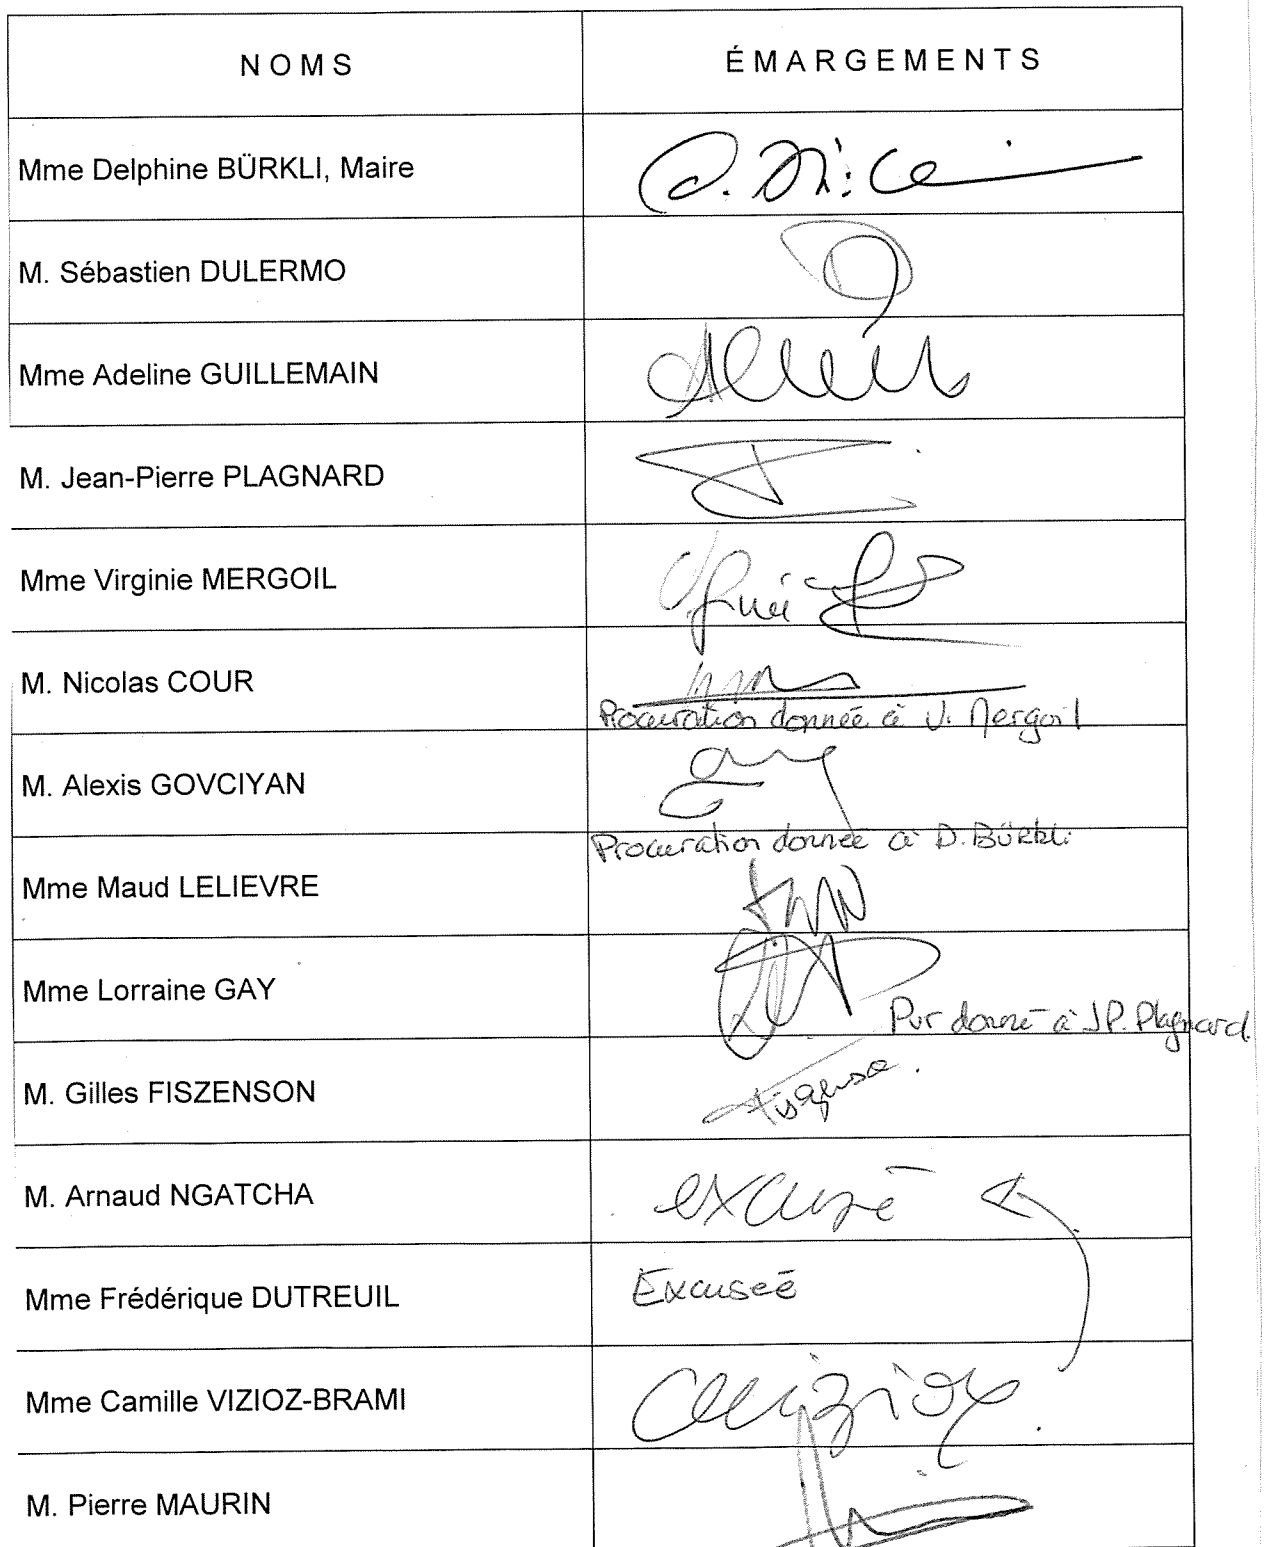 NOMS
ÉMARGEMENTS
Mme Delphine BÜRKLI, Maire
M. Sébastien DULERMO
Mme Adeline GUILLEMAIN
M. Jean-Pierre PLAGNARD
Mme Virginie MERGOIL
M. Nicolas COUR
Procuration donnée à V. Mergoil
M. Alexis GOVCIYAN
Procuration donnée à D. Bürkli
Mme Maud LELIEVRE
Mme Lorraine GAY
Pvr donné à JP. Plagnard
M. Gilles FISZENSON
M. Arnaud NGATCHA
excusé
Mme Frédérique DUTREUIL
Excuseé
Mme Camille VIZIOZ-BRAMI
M. Pierre MAURIN